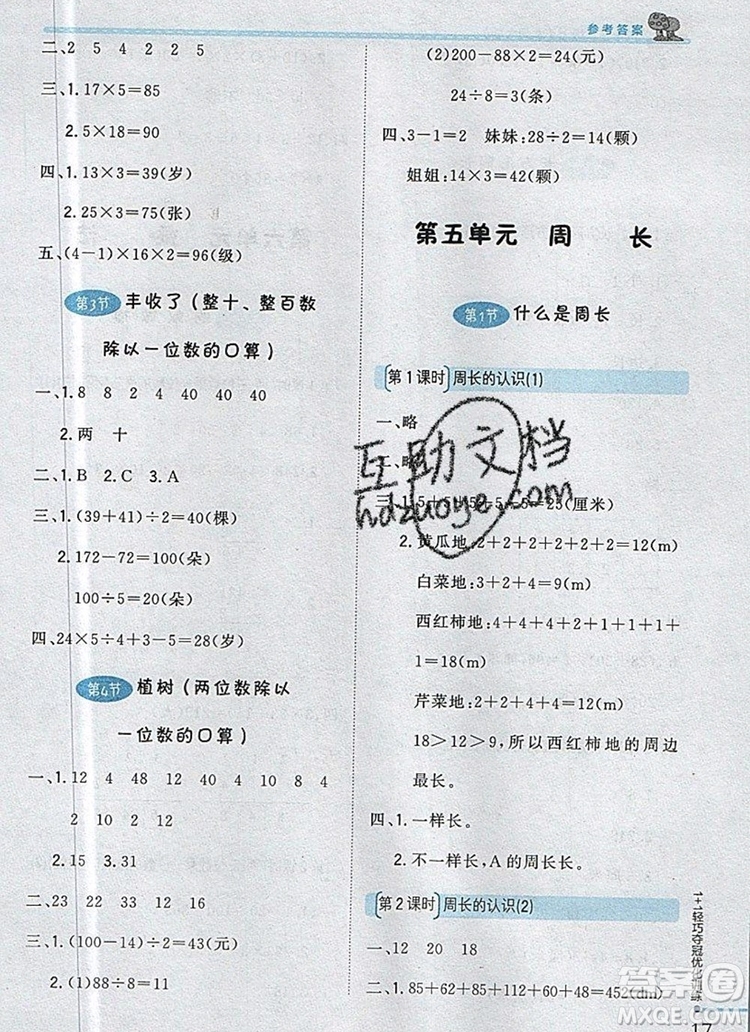 参考答案
二、2 5 4 2 2 5
三、1.17×5=85
2.5×18=90
四、1.13×3=39(岁)
2.25×3=75(张)
五、(4-1)×16×2=96(级)
第3节 丰收了(整十、整百数
除以一位数的口算)
一、1.8 8 2 4 40 40 40
2.两 十
二、1.B 2.C 3.A
三、1.(39+41)÷2=40(棵)
2.172-72=100(朵)
100÷5=20(朵)
四、24×5÷4+3-5=28(岁)
第4节 植树(两位数除以
一位数的口算)
一、1.12 4 48 12 40 4 10 8 4
2 10 2 12
2.15 3.31
二、23 22 32 13 16
三、1.(100-44)÷2=28(个)
2.(1)88÷8=11(元)
(2)200-88×2=24(元)
24÷8=3(条)
四、3-1=2 妹妹:28÷2=14(颗)
姐姐:14×3=42(颗)
第五单元 周 长
第1节 什么是周长
第1课时 周长的认识(1)
一、略
二、略
=25(厘米)
2.黄瓜地:2+2+2+2+2+2=12(m)
白菜地:3+2+4=9(m)
西红柿地:4+4+4+1+1+1+
1+1+1=18(m)
芹菜地:2+2+4+4=12(m)
18>12>9,所以西红柿地的周边
最长。
四、1.一样长。
2.不一样长,A的周长长。
第2课时 周长的认识(2)
一、12 20 18
二、1.85+62+85+112+60+48=452(dm)
互助文档
hdzuoye.com
1+1轻巧夺冠优化训练
答案圈
MXQE.COM
17